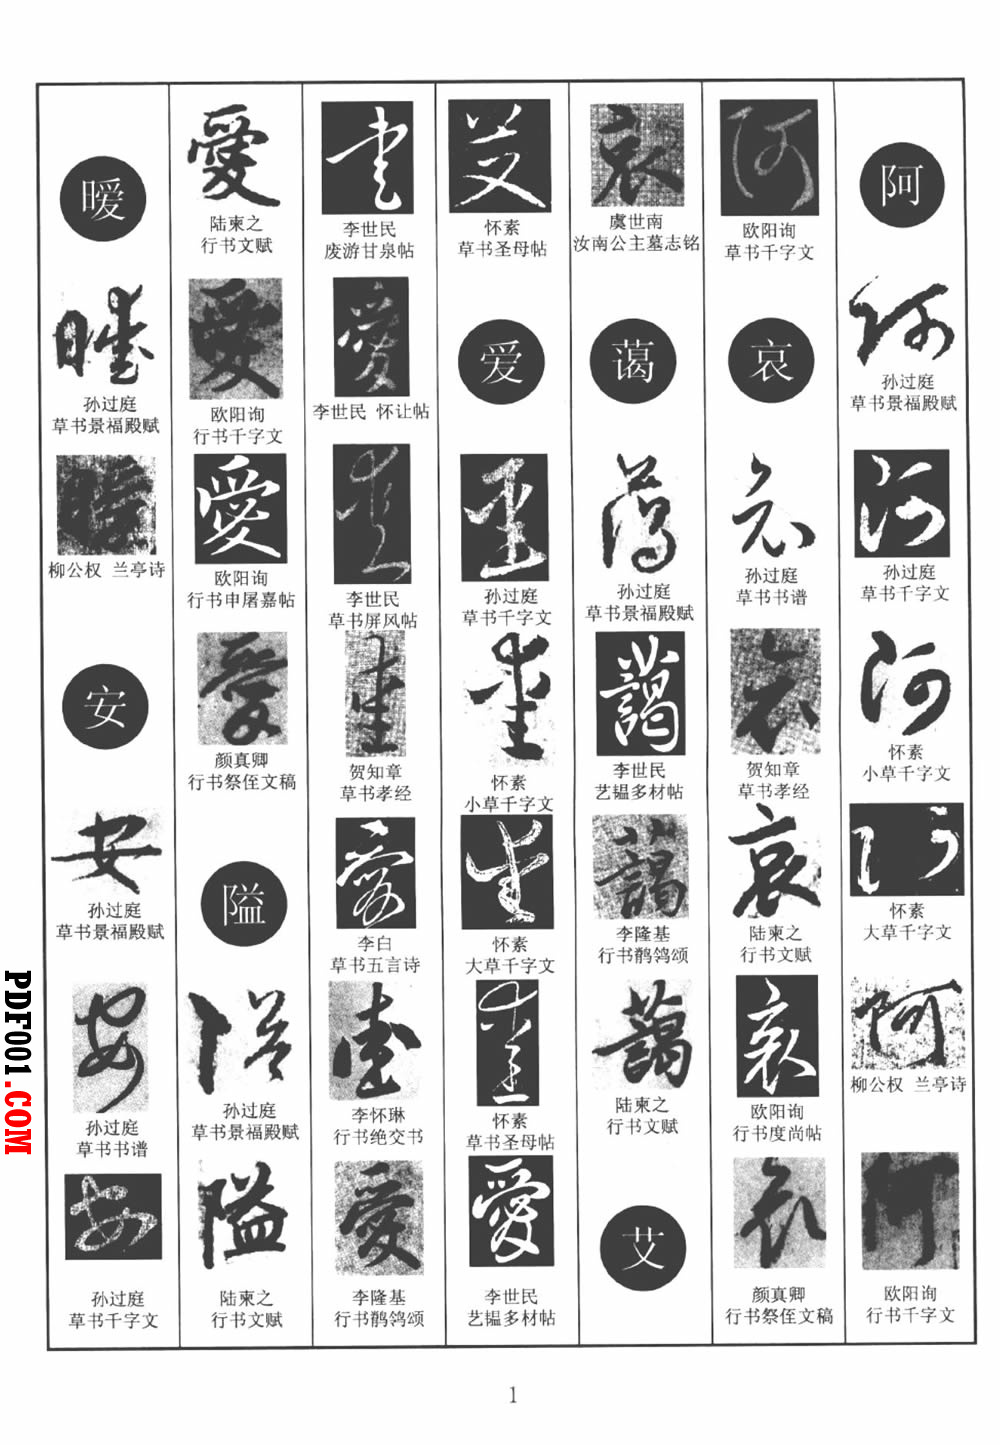 阿
孙过庭
草书景福殿赋
孙过庭
草书千字文
怀素
小草千字文
怀素
大草千字文
柳公权 兰亭诗
欧阳询
行书千字文
欧阳询
草书千字文
哀
孙过庭
草书书谱
贺知章
草书孝经
陆柬之
行书文赋
欧阳询
行书度尚帖
颜真卿
行书祭侄文稿
虞世南
汝南公主墓志铭
蔼
孙过庭
草书景福殿赋
李世民
艺韫多材帖
李隆基
行书鹡鸰颂
陆柬之
行书文赋
艾
怀素
草书圣母帖
爱
孙过庭
草书千字文
怀素
小草千字文
怀素
大草千字文
怀素
草书圣母帖
李世民
艺韫多材帖
李世民
废游甘泉帖
李世民 怀让帖
李世民
草书屏风帖
贺知章
草书孝经
李白
草书五言诗
李怀琳
行书绝交书
李隆基
行书鹡鸰颂
陆柬之
行书文赋
欧阳询
行书千字文
欧阳询
行书申屠嘉帖
颜真卿
行书祭侄文稿
隘
孙过庭
草书景福殿赋
陆柬之
行书文赋
暧
孙过庭
草书景福殿赋
柳公权 兰亭诗
安
孙过庭
草书景福殿赋
孙过庭
草书书谱
孙过庭
草书千字文
PDF001.COM
1